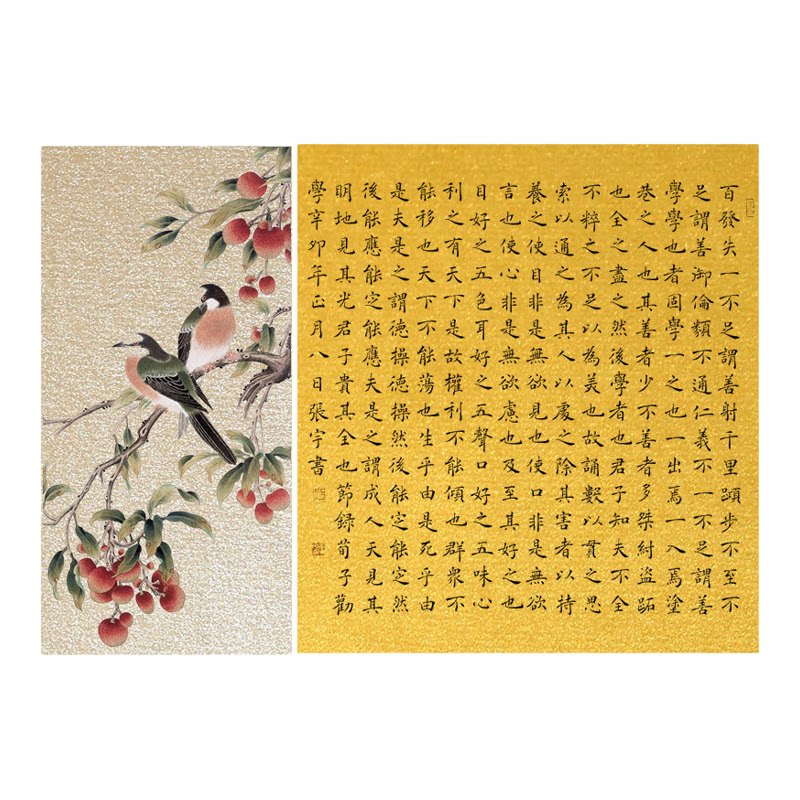 百發失一不足謂善射千里蹞步不至不
足謂善御倫類不通仁義不一不足謂善
學學也者固學一之也一出焉一入焉塗
巷之人也其善者少不善者多桀紂盜跖
也全之盡之然後學者也君子知夫不全
不粹之不足以為美也故誦數以貫之思
索以通之為其人以處之除其害者以持
養之使目非是無欲見也使口非是無欲
言也使心非是無欲慮也及至其好之也
目好之五色耳好之五聲口好之五味心
利之有天下是故權利不能傾也群衆不
能移也天下不能蕩也生乎由是死乎由
是夫是之謂德操德操然後能定能定然
後能應能定能應夫是之謂成人天見其
明地見其光君子貴其全也節録荀子勸
學辛卯年正月八日張宇書